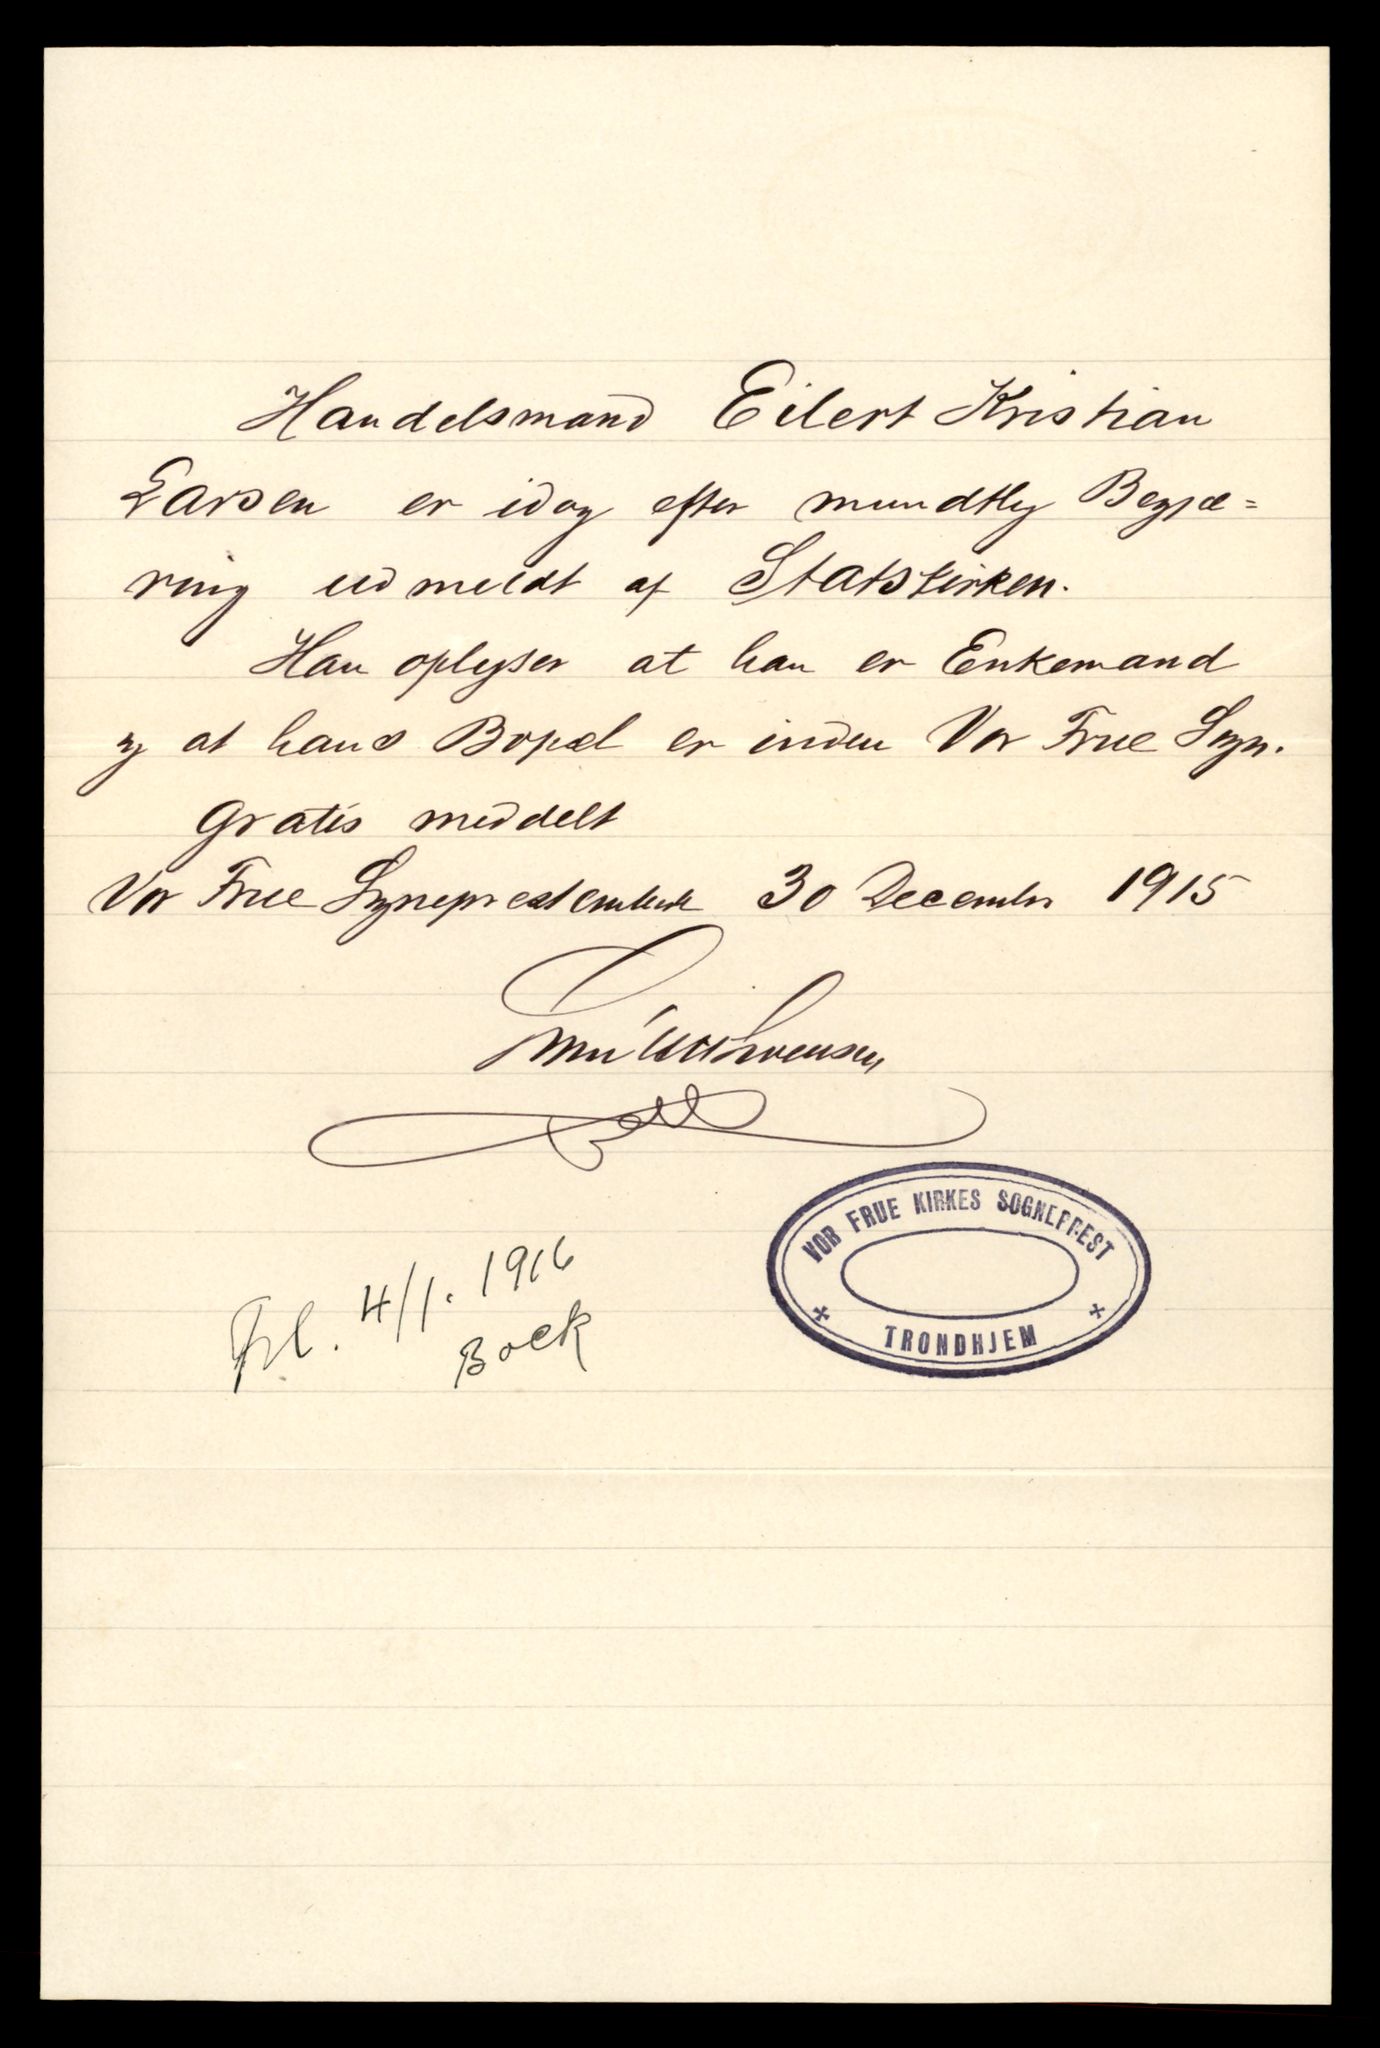 Handelsmand Eilert Kristian
Larsen er idag efter mundtlig Begjæ=
ring udmeldt af Statskirken.
Han oplyser at han er Enkemand
og at hans Bopæl er inden Vor Frue Sogn.
Gratis meddelt
Vor Frue Sogneprestembede 30 December 1915
VOR FRUE KIRKES SOGNEPREST
TRONDHJEM
4/1. 1916
Bock